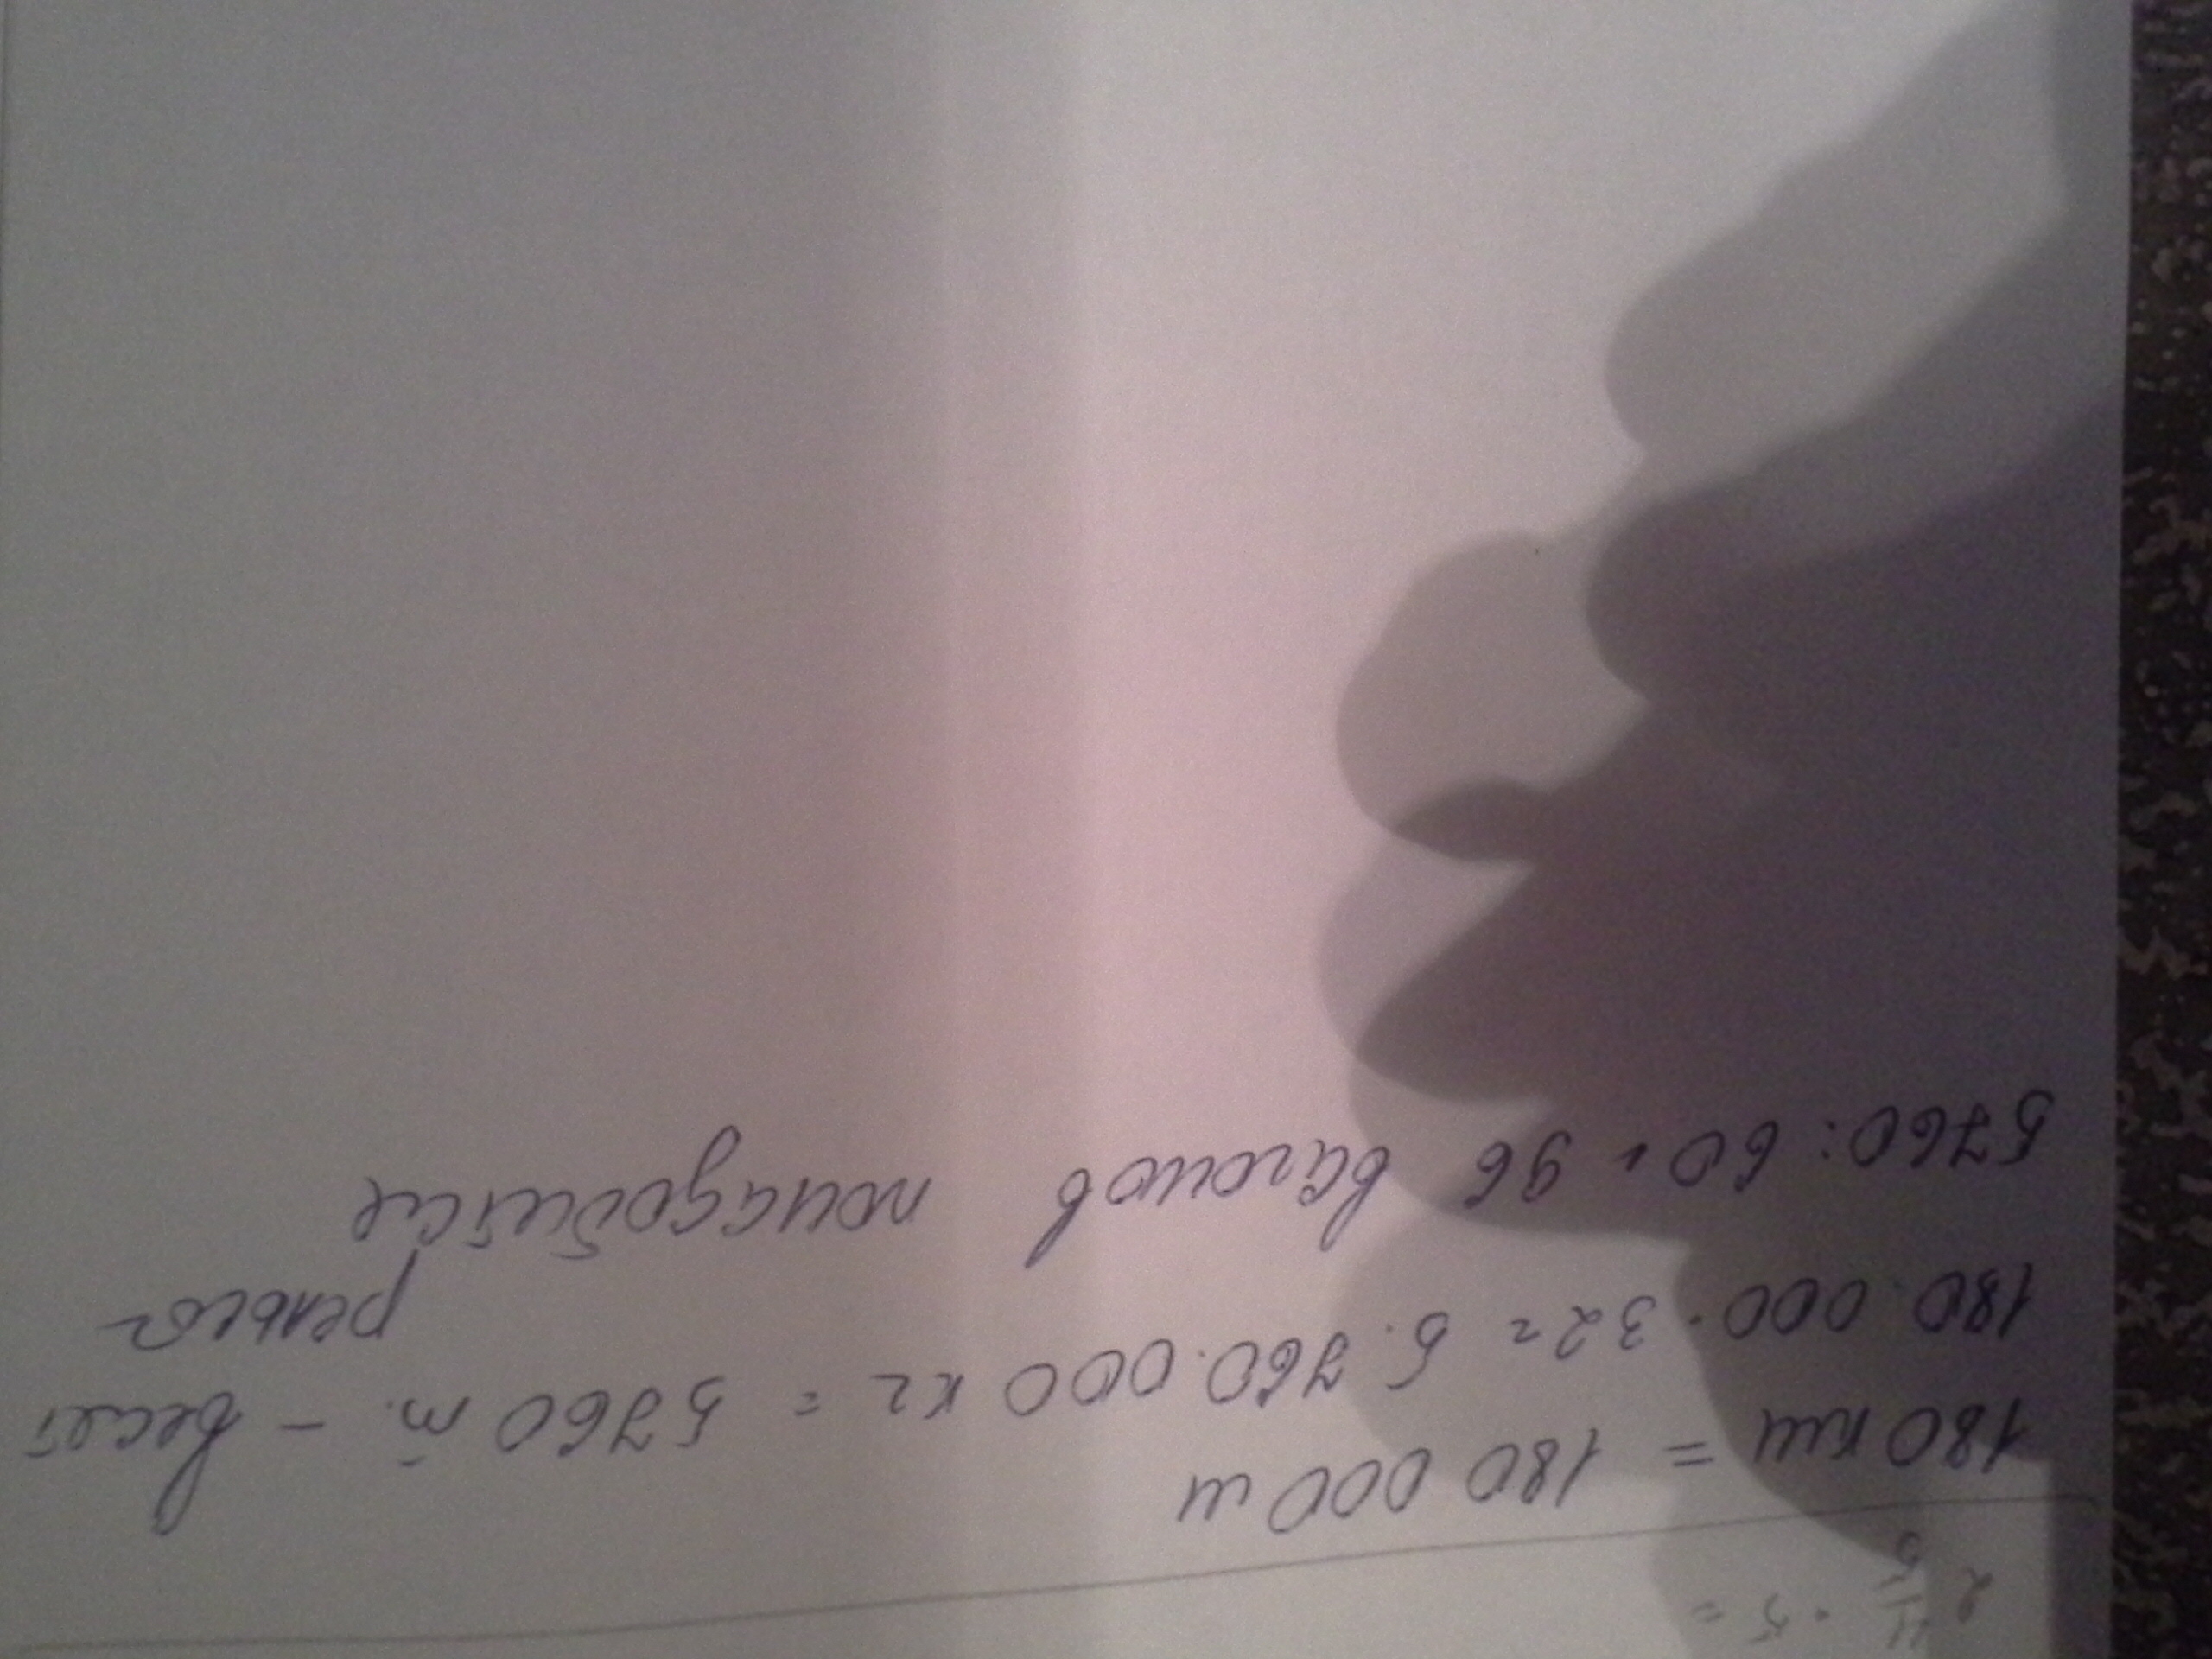 2 4/5 · 5 =
180 км = 180 000 м
180.000 · 32 = 5.760.000 кг = 5760 т. – весят
рельсы
5760 : 60 = 96 вагонов понадобится